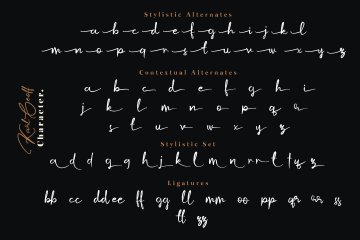 Stylistic Alternates
a b c d e f g h i j k l
m n o p q r s t u v w x y z
Contextual Alternates
a b c d e f g h i
j k l m n o p q r
s t u v w x y z
Stylistic Set
a d d g g h j k l m n r r l t y z z
Ligatures
bb cc dd ee ff gg ll mm oo pp qq rr ss
tt zz
Character.